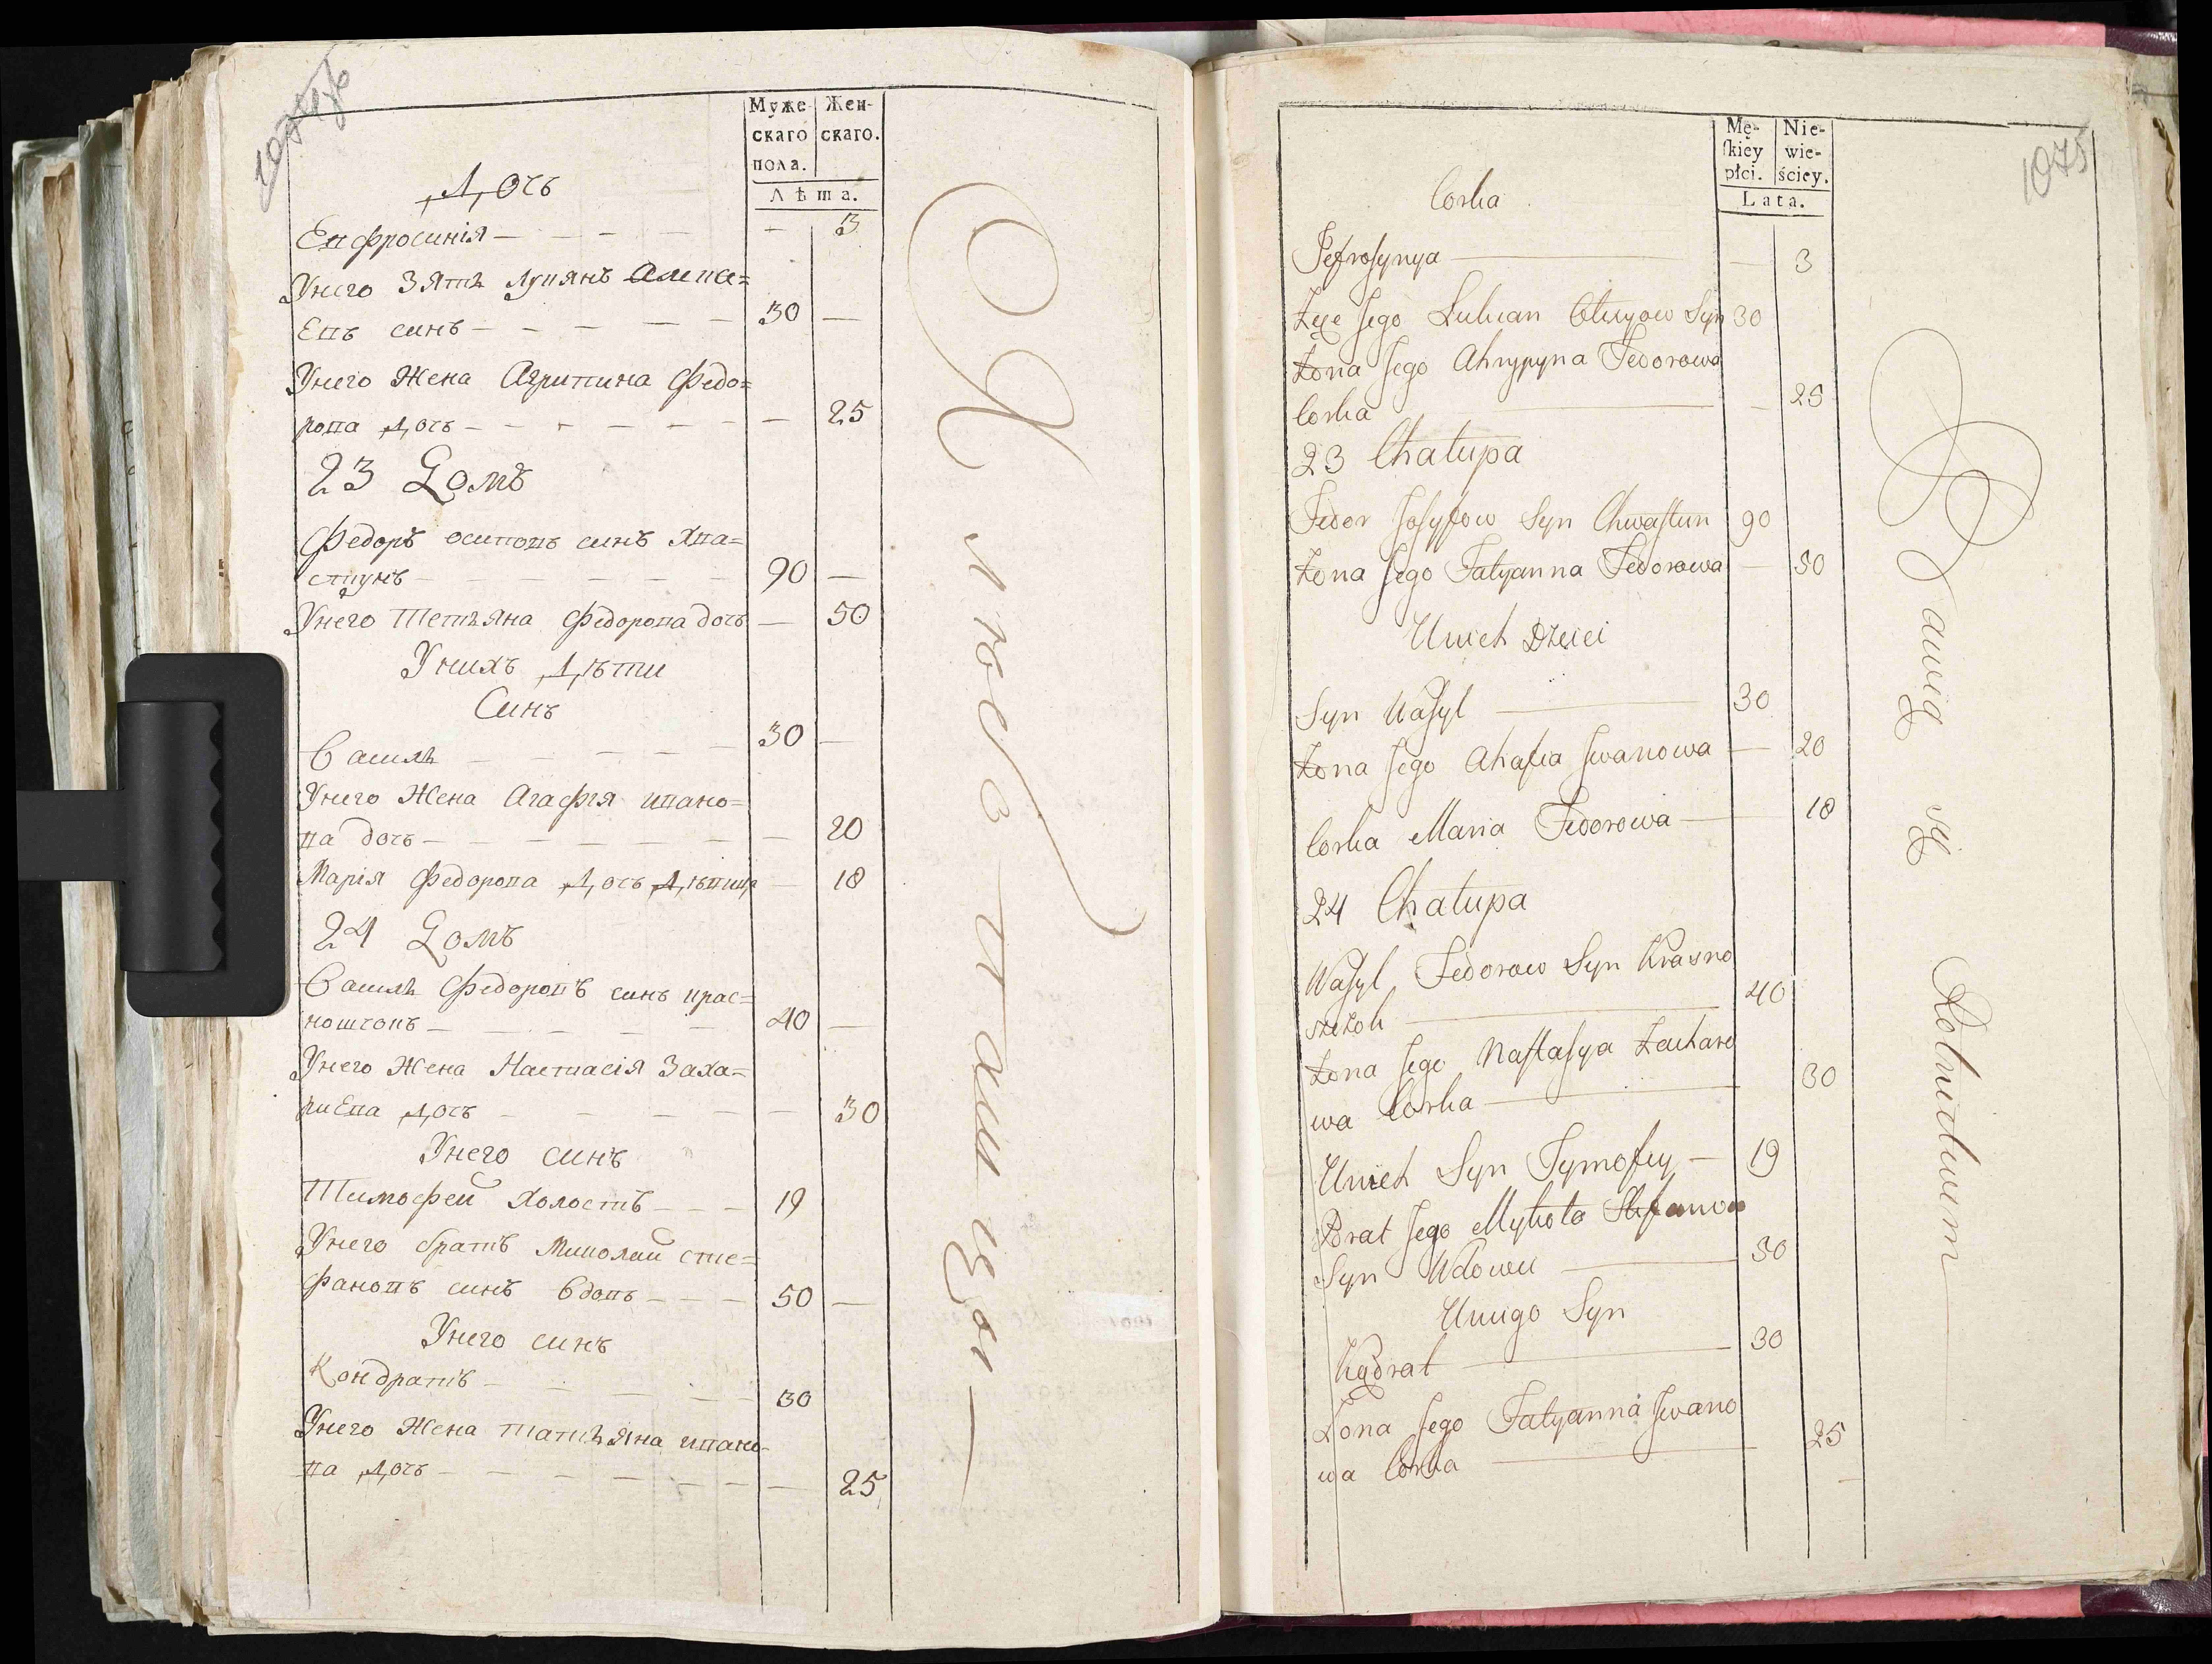 Муже- Жен-
скаго скаго.
пола.
Лѣта.
Дочъ
Евфросинія — — — — — 3
Унего Зять Лукянъ Алексе=
Евъ синъ — — — — — 30 —
Унего Жена Агрипина Федо=
рова Дочъ — — — — — — 25
23 Домъ
Федоръ осиповъ синъ Хва=
стунъ — — — — — 90 —
Унего Тетьяна Федорова дочъ — 50
Унихъ Дѣти
Синъ
Василь — — — — 30 —
Унего Жена Агафія ивано=
ва дочъ — — — — — — 20
Марія Федорова Дочъ Дѣвица — 18
24 Домъ
Василь Федоровъ синъ крас=
ношчокъ — — — — — 40 —
Унего Жена Настасія Заха=
риЕва Дочъ — — — — — 30
Унего синъ
Тимофей Холостъ — — — 19
Унего братъ Миколай сте=
фановъ синъ вдовъ — — — 50 —
Унего синъ
Кондратъ — — — — — 30
Унего Жена татьяна ивано-
ва Дочъ — — — — — — — 25
живетъ
1075
Mę- Nie-
skiey wie-
płci. ściey.
Lata.
Corka
Jefrosynya — — 3
Zęć Jego Lukian Syn 30
Żona Jego Ahrypyna Fedorowa
Corka — — 25
23 Chałupa
Fedor Josyfow Syn Chwastun 90
Żona Jego Tatyanna Fedorowa — 50
Unich Dzieci
Syn Wasyl — 30
Żona Jego Ahafia Jwanowa — 20
Corka Maria Fedorowa — 18
24 Chałupa
Wasyl Fedorow Syn Krasno
szczok — 40
Żona Jego Nastasya Zacharo
wa Corka — 30
Unich Syn Tymofiy — 19
Brat Jego Mykoła Stefanow
Syn Wdowiec — 50
Uniego Syn
Kądrat — 30
Żona Jego Tatyanna Jwano
wa Corka — 25
Bawią się Rolnictwem